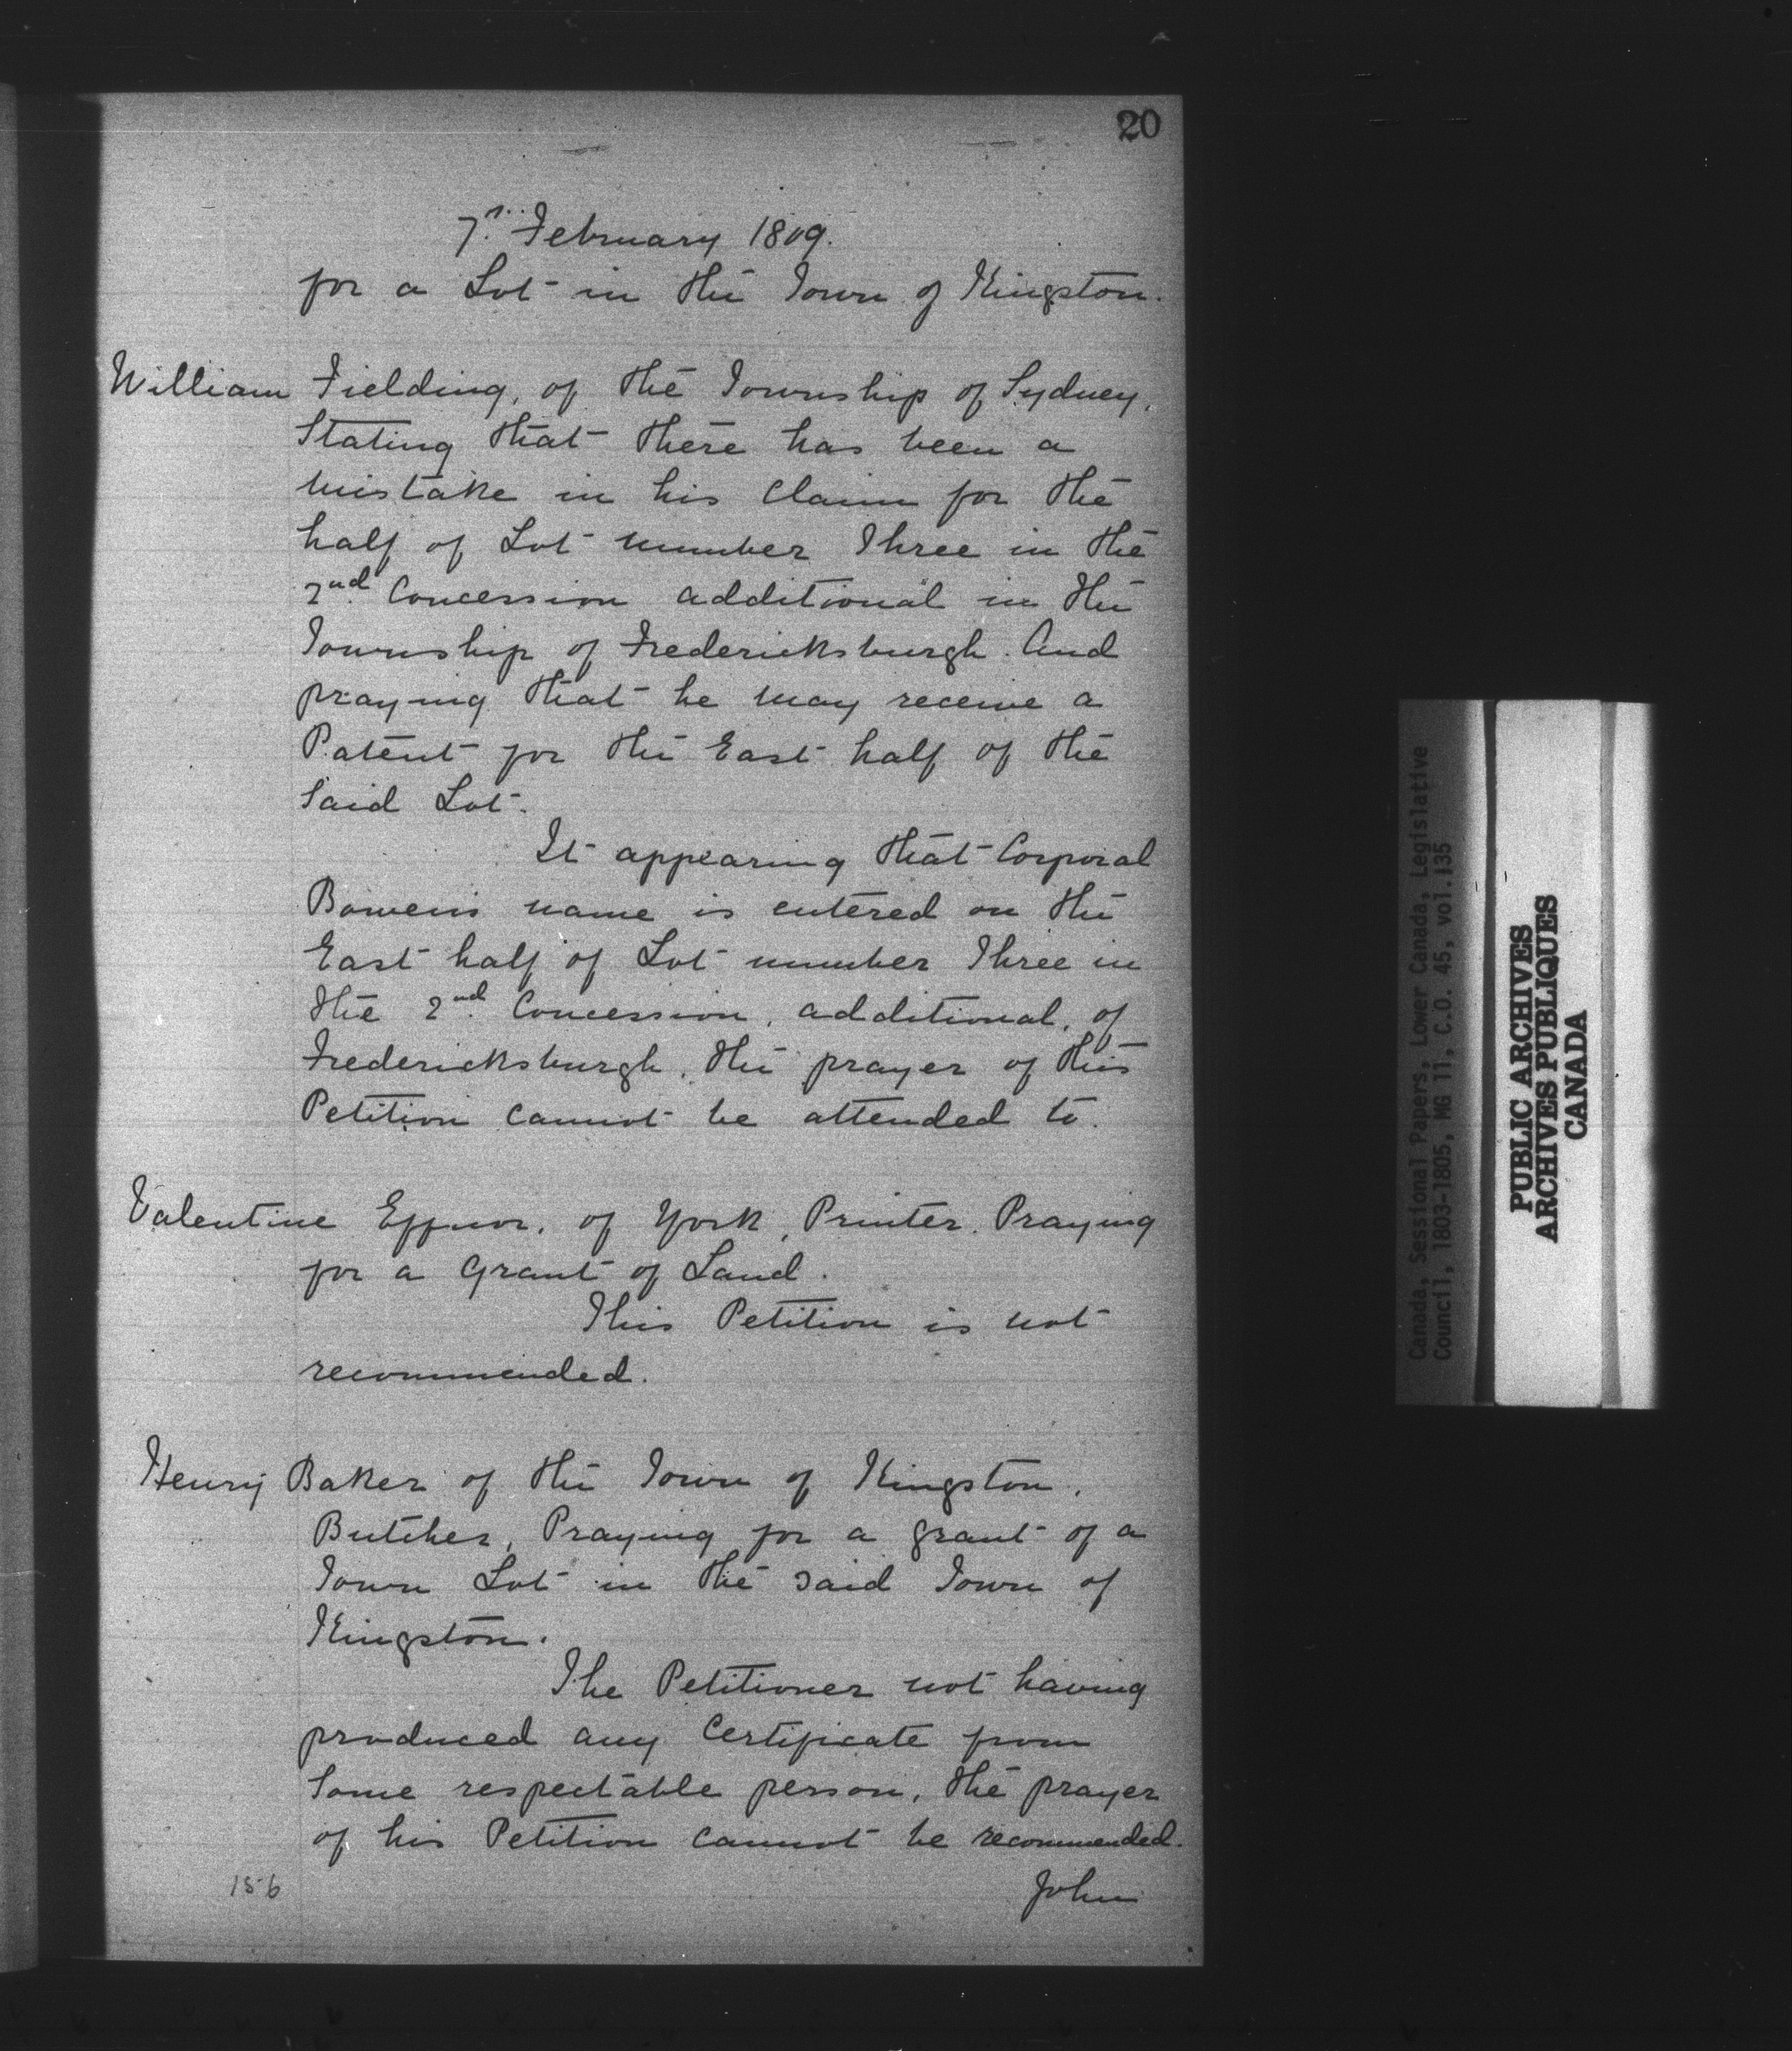 20
7th February 1809.
for a Lot in the Town of Kingston.
William Fielding, of the Township of Sydney,
Stating that there has been a
mistake in his Claim for the
half of Lot number Three in the
2nd Concession additional in the
Township of Fredericksburgh. And
praying that he may receive a
Patent for the East half of the
Said Lot.
It appearing that Corporal
Bowens name is entered on the
East half of Lot number Three in
the 2nd Concession, additional, of
Fredericksburgh, the prayer of this
Petition cannot be attended to.
Valentine of York, Printer. Praying
for a Grant of Land.
This Petition is not
recommended.
Henry Baker of the Town of Kingston,
Butcher, Praying for a grant of a
Town Lot in the said Town of
Kingston.
The Petitioner not having
produced any Certificate from
Some respectable person, the prayer
of his Petition cannot be recommended.
156
John
Canada, Sessional Papers, Lower Canada, Legislative
Council, 1803-1805, MG 11, C.O. 45, vol.135
PUBLIC ARCHIVES
ARCHIVES PUBLIQUES
CANADA